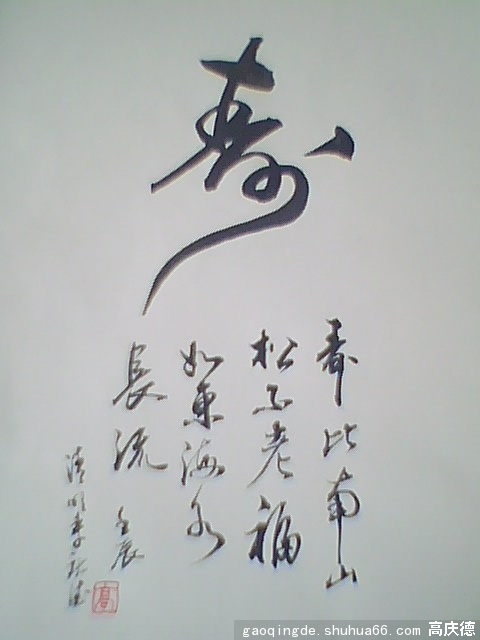 寿
寿比南山
松不老福
如東海水
長流 壬辰
清明季秋
高
gaoqingde.shuhua66.com 高庆德